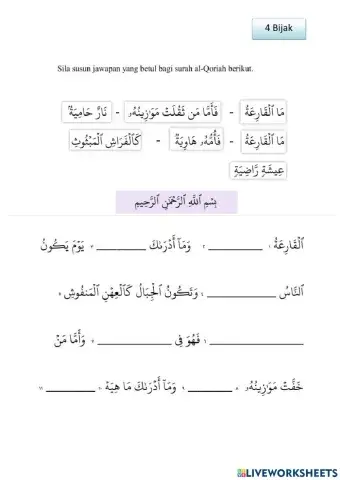 4 Bijak
Sila susun jawapan yang betul bagi surah al-Qoriah berikut.
مَا ٱلْقَارِعَةُ - فَأَمَّا مَن ثَقُلَتْ مَوَٰزِينُهُۥ - نَارٌ حَامِيَةٌۢ
مَا ٱلْقَارِعَةُ - فَأُمُّهُۥ هَاوِيَةٌ - كَٱلْفَرَاشِ ٱلْمَبْثُوثِ
عِيشَةٍ رَّاضِيَةٍ
بِسْمِ ٱللَّهِ ٱلرَّحْمَٰنِ ٱلرَّحِيمِ
ٱلْقَارِعَةُ ١ ________ ٢ وَمَآ أَدْرَىٰكَ ________ ٣ يَوْمَ يَكُونُ
ٱلنَّاسُ ________ ٤ وَتَكُونُ ٱلْجِبَالُ كَٱلْعِهْنِ ٱلْمَنفُوشِ ٥
________ ٦ فَهُوَ فِى ________ ٧ وَأَمَّا مَنْ
خَفَّتْ مَوَٰزِينُهُۥ ٨ ________ ٩ وَمَآ أَدْرَىٰكَ مَا هِيَهْ ١٠ ________ ١١
LIVEWORKSHEETS